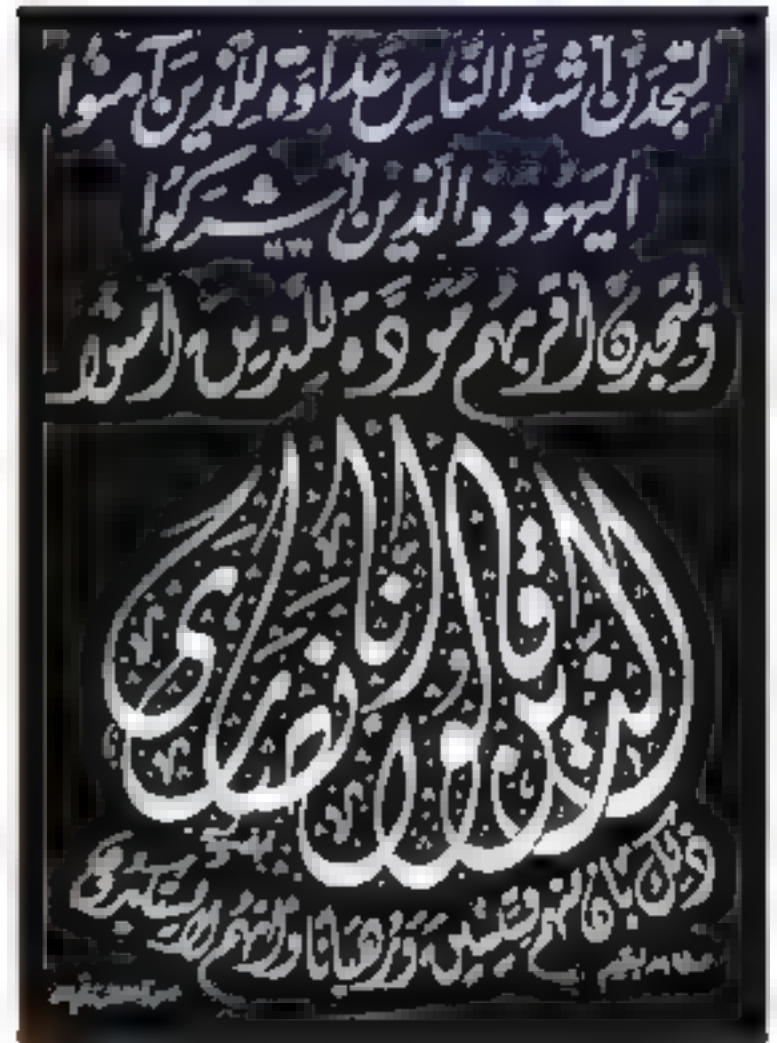 لتجدن أشد الناس عداوة للذين آمنوا
اليهود والذين أشركوا
ولتجدن أقربهم مودة للذين آمنوا
الذين قالوا إنا نصارى
ذلك بأن منهم قسيسين ورهبانا وأنهم لا يستكبرون